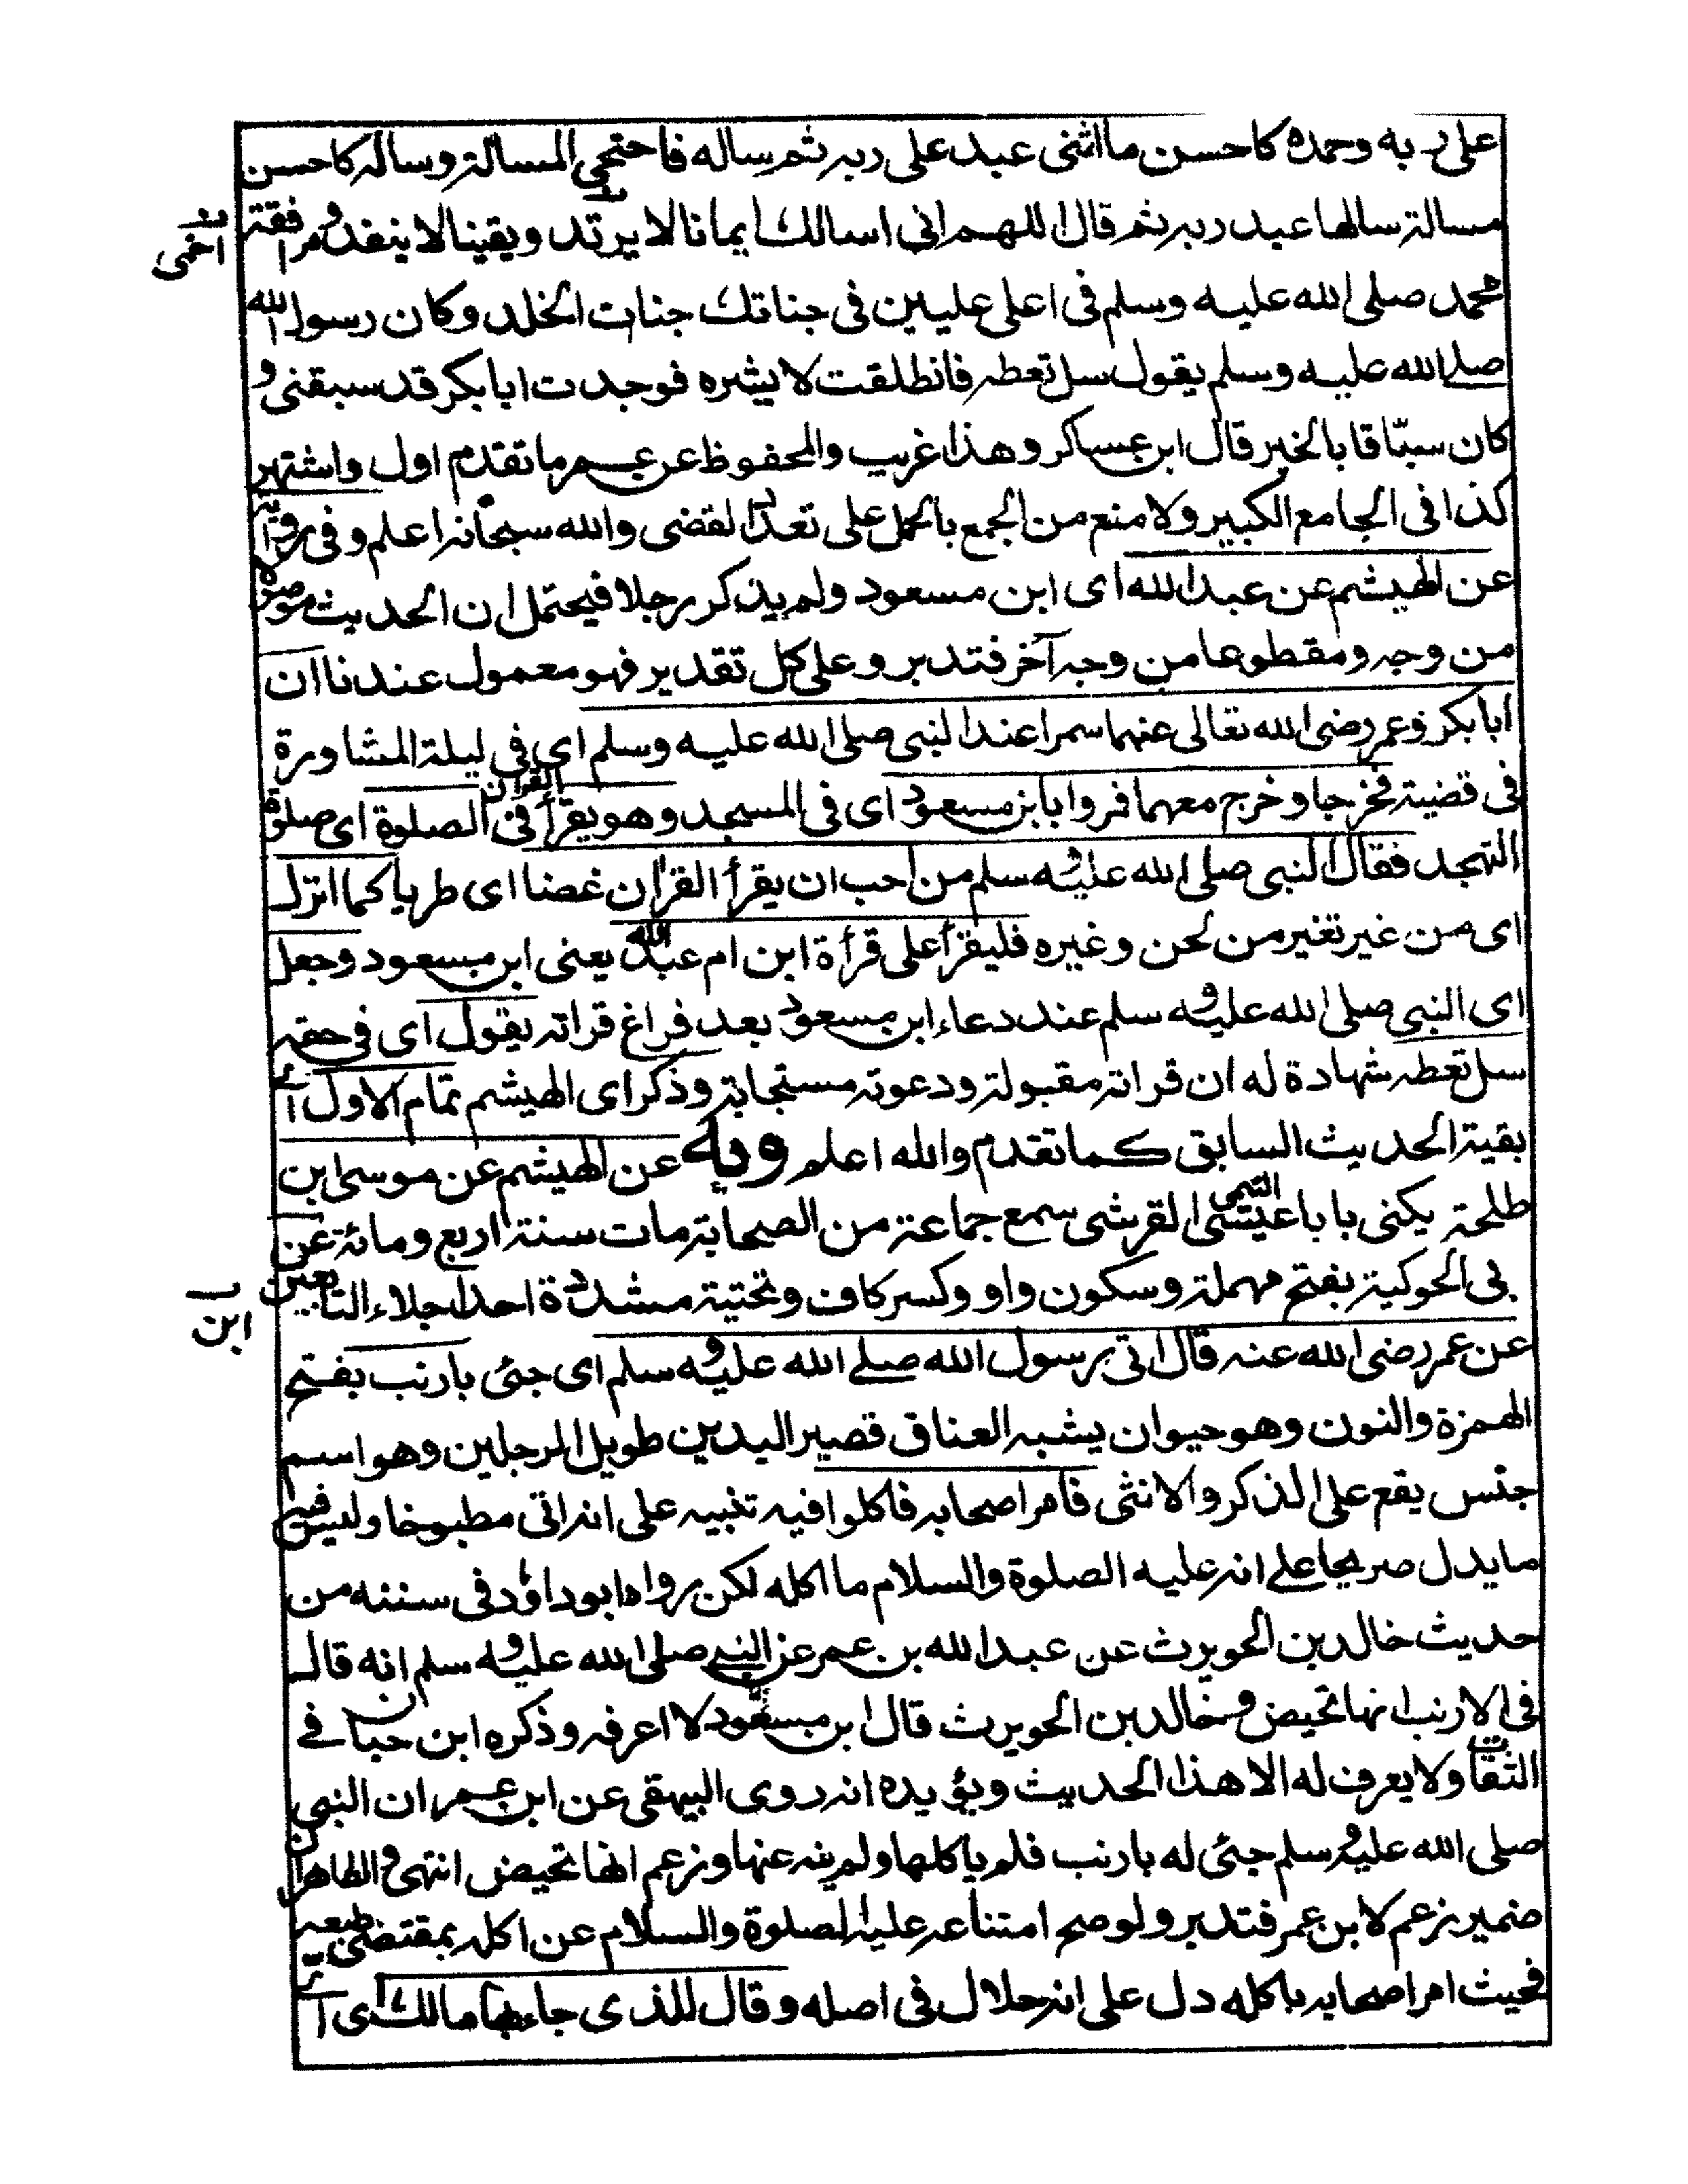 على ربه وحمده كاحسن ما اثنى عبد على ربه ثم ساله فاحتجى المسالة وساله كاحسن
مسالة سالها عبد ربه ثم قال اللهم انى اسالك ايمانا لا يرتد ويقينا لا ينفد ومرافقة
اخمى
محمد صلى الله عليه وسلم فى اعلى عليين فى جناتك جنات الخلد وكان رسول الله
صلى الله عليه وسلم يقول سل تعطه فانطلقت لابشره فوجدت ابابكر قد سبقنى و
كان سبّاقا بالخير قال ابن عساكر وهذا غريب والمحفوظ عن عمر ما تقدم اول واشتهر
كذا فى الجامع الكبير ولا منع من الجمع بالحمل على تعدد القضى والله سبحانه اعلم وفى رواية
عن الهيثم عن عبد الله اى ابن مسعود ولم يذكر رجلا فيحتمل ان الحديث موصولا
من وجه ومقطوعا من وجه آخر فتدبر وعلى كل تقدير فهو معمول عندنا ان
ابابكر وعمر رضى الله تعالى عنهما سمرا عند النبى صلى الله عليه وسلم اى فى ليلة المشاورة
فى قضية فخرجا وخرج معهما فمروا بابن مسعود اى فى المسجد وهو يقرأ القران فى الصلوة اى صلوة
التهجد فقال النبى صلى الله عليه وسلم من احب ان يقرأ القران غضا اى طريا كما انزل
اى من غير تغير من لحن وغيره فليقرأ على قرأة ابن ام عبد الله يعنى ابن مسعود وجعل
اى النبى صلى الله عليه وسلم عند دعاء ابن مسعود بعد فراغ قراته يقول اى فى حقه
سل تعطه شهادة له ان قراته مقبولة ودعوته مستجابة وذكر اى الهيثم تمام الاول اے
بقية الحديث السابق كما تقدم والله اعلم وبه عن الهيثم عن موسى ابن
طلحة يكنى با با عيسى التيمى القرشى سمع جماعة من الصحابة مات سنة اربع ومائة عن
ابن
بى الحوكية بفتح مهملة وسكون واو وكسر كاف وتحتية مشددة احد اجلاء التابعين
عن عمر رضى الله عنه قال اتى برسول الله صلے الله عليه وسلم اى جئى بارنب بفتح
الهمزة والنون وهو حيوان يشبه العناق قصير اليدين طويل الرجلين وهو اسم
جنس يقع على الذكر والانثى فامر اصحابه فاكلوا فيه تنبيه على انه اتى مطبوخا وليس فيه
ما يدل صريحا على انه عليه الصلوة والسلام ما اكله لكن رواه ابو داؤد فى سننه من
حديث خالد بن الحويرث عن عبد الله بن عمر عن النبے صلى الله عليه وسلم انه قال
فى الارنب انها تحيض وخالد بن الحويرث قال ابن مسعود لا اعرفه وذكره ابن حبان فے
الثقات ولا يعرف له الا هذا الحديث ويؤيده انه روى البيهقى عن ابن عمر ان النبى
صلى الله عليه وسلم جئى له بارنب فلم ياكلها ولم ينه عنها وزعم انها تحيض انتهى والظاهر ان
ضمير زعم لابن عمر فتدبر ولو صح امتناعه عليه الصلوة والسلام عن اكله بمقتضى طبعه
فحيث امر اصحابه باكله دل على انه حلال فى اصله وقال للذى جاء بها مالك اى اے